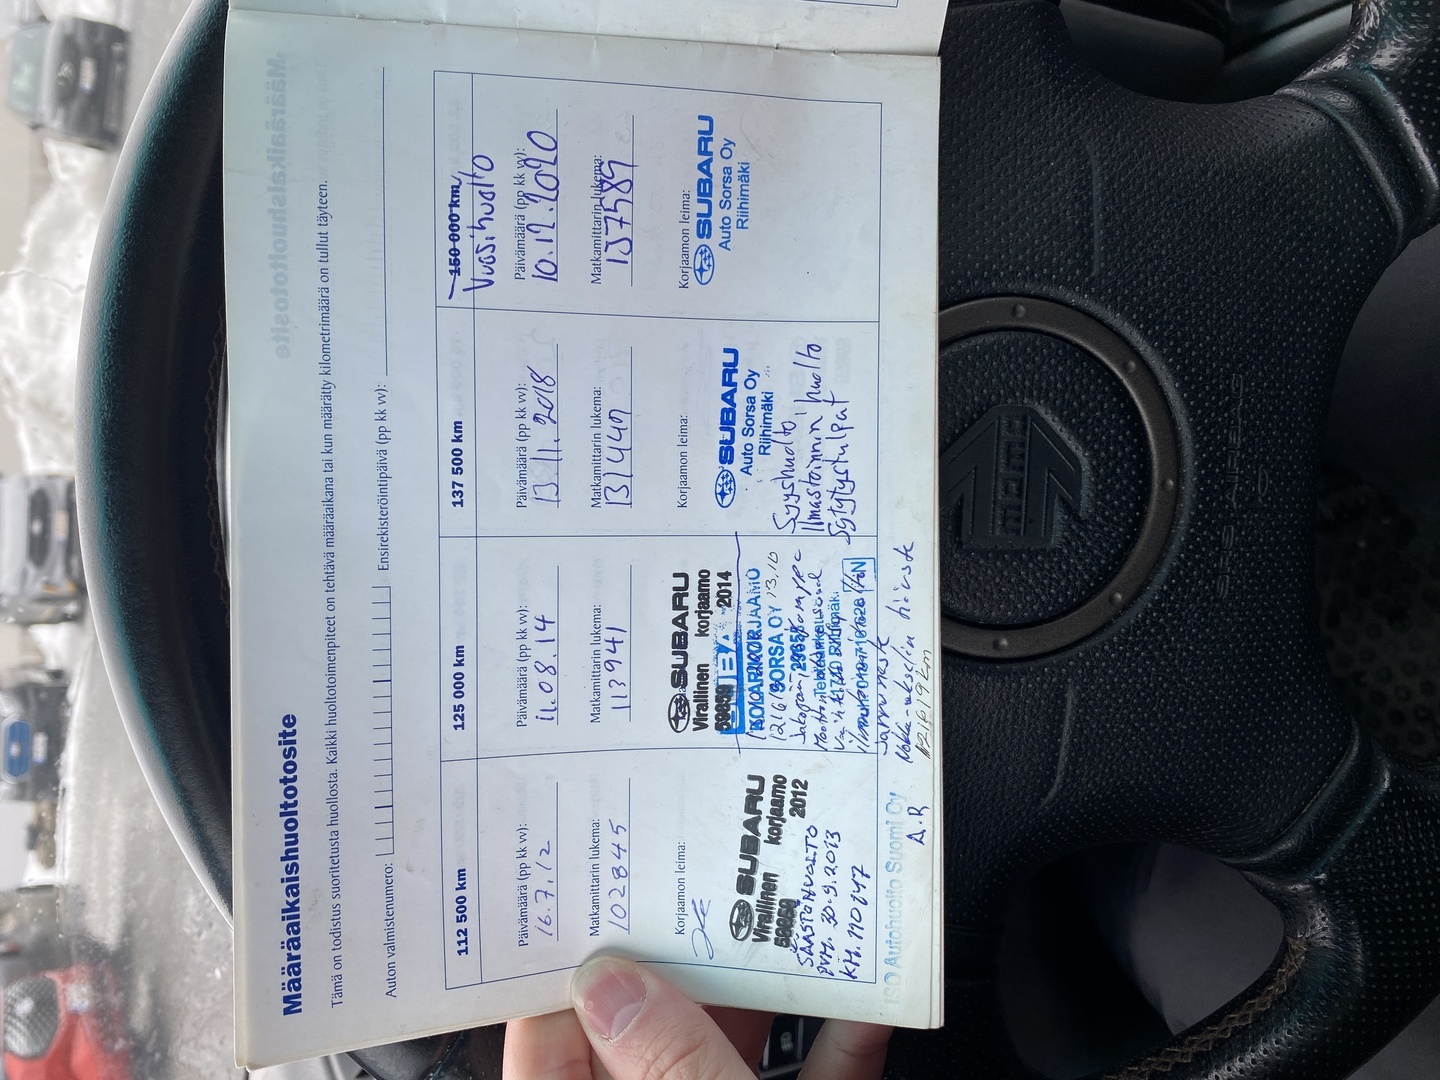 Määräaikaishuoltotosite
Tämä on todistus suoritetusta huollosta. Kaikki huoltotoimenpiteet on tehtävä määräaikana tai kun määrätty kilometrimäärä on tullut täyteen.
Auton valmistenumero:
Ensirekisteröintipäivä (pp kk vv):
112 500 km
Päivämäärä (pp kk vv):
16.7.12
Matkamittarin lukema:
102845
Korjaamon leima:
SUBARU
Virallinen korjaamo
2012
SÄÄSTÖHUOLTO
PVM. 30.9.2013
KM. 110147
125 000 km
Päivämäärä (pp kk vv):
11.08.14
Matkamittarin lukema:
113941
Korjaamon leima:
SUBARU
Virallinen korjaamo
2014
KOLARIKORJAAMO
SORSA OY
Jarruneste
Nokka-akselin hihnste
A.R
137 500 km
Päivämäärä (pp kk vv):
13.11.2018
Matkamittarin lukema:
131447
Korjaamon leima:
SUBARU
Auto Sorsa Oy
Riihimäki
Syyshuolto
Ilmastoinnin huolto
Sytytystulpat
150 000 km
Vuosihuolto
Päivämäärä (pp kk vv):
10.12.2020
Matkamittarin lukema:
137589
Korjaamon leima:
SUBARU
Auto Sorsa Oy
Riihimäki
ISO Autohuolto Suomi Oy
momo
SRS AIRBAG